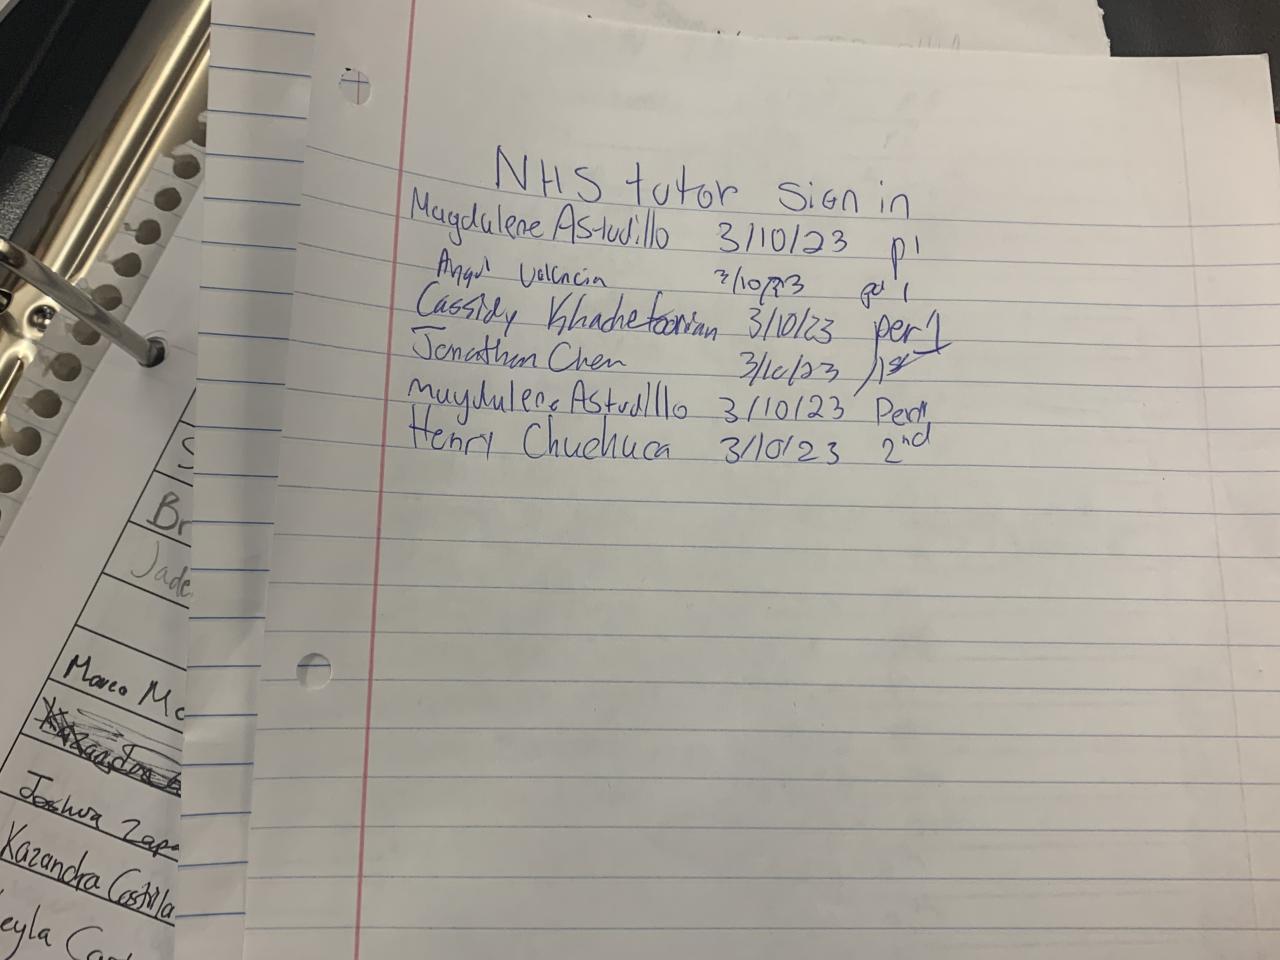 NHS tutor sign in
Magdulene Astudillo 3/10/23 p1
Valencia 3/10/23 1
Cassidy Khachetoorian 3/10/23 per 1
Jonathan Chen 3/10/23 1st
Magdulene Astudillo 3/10/23 Per
Henry Chuchuca 3/10/23 2nd
S
Br
Jade
Marco Mc
Joshua Zapa
Kazandra Castilla
eyla